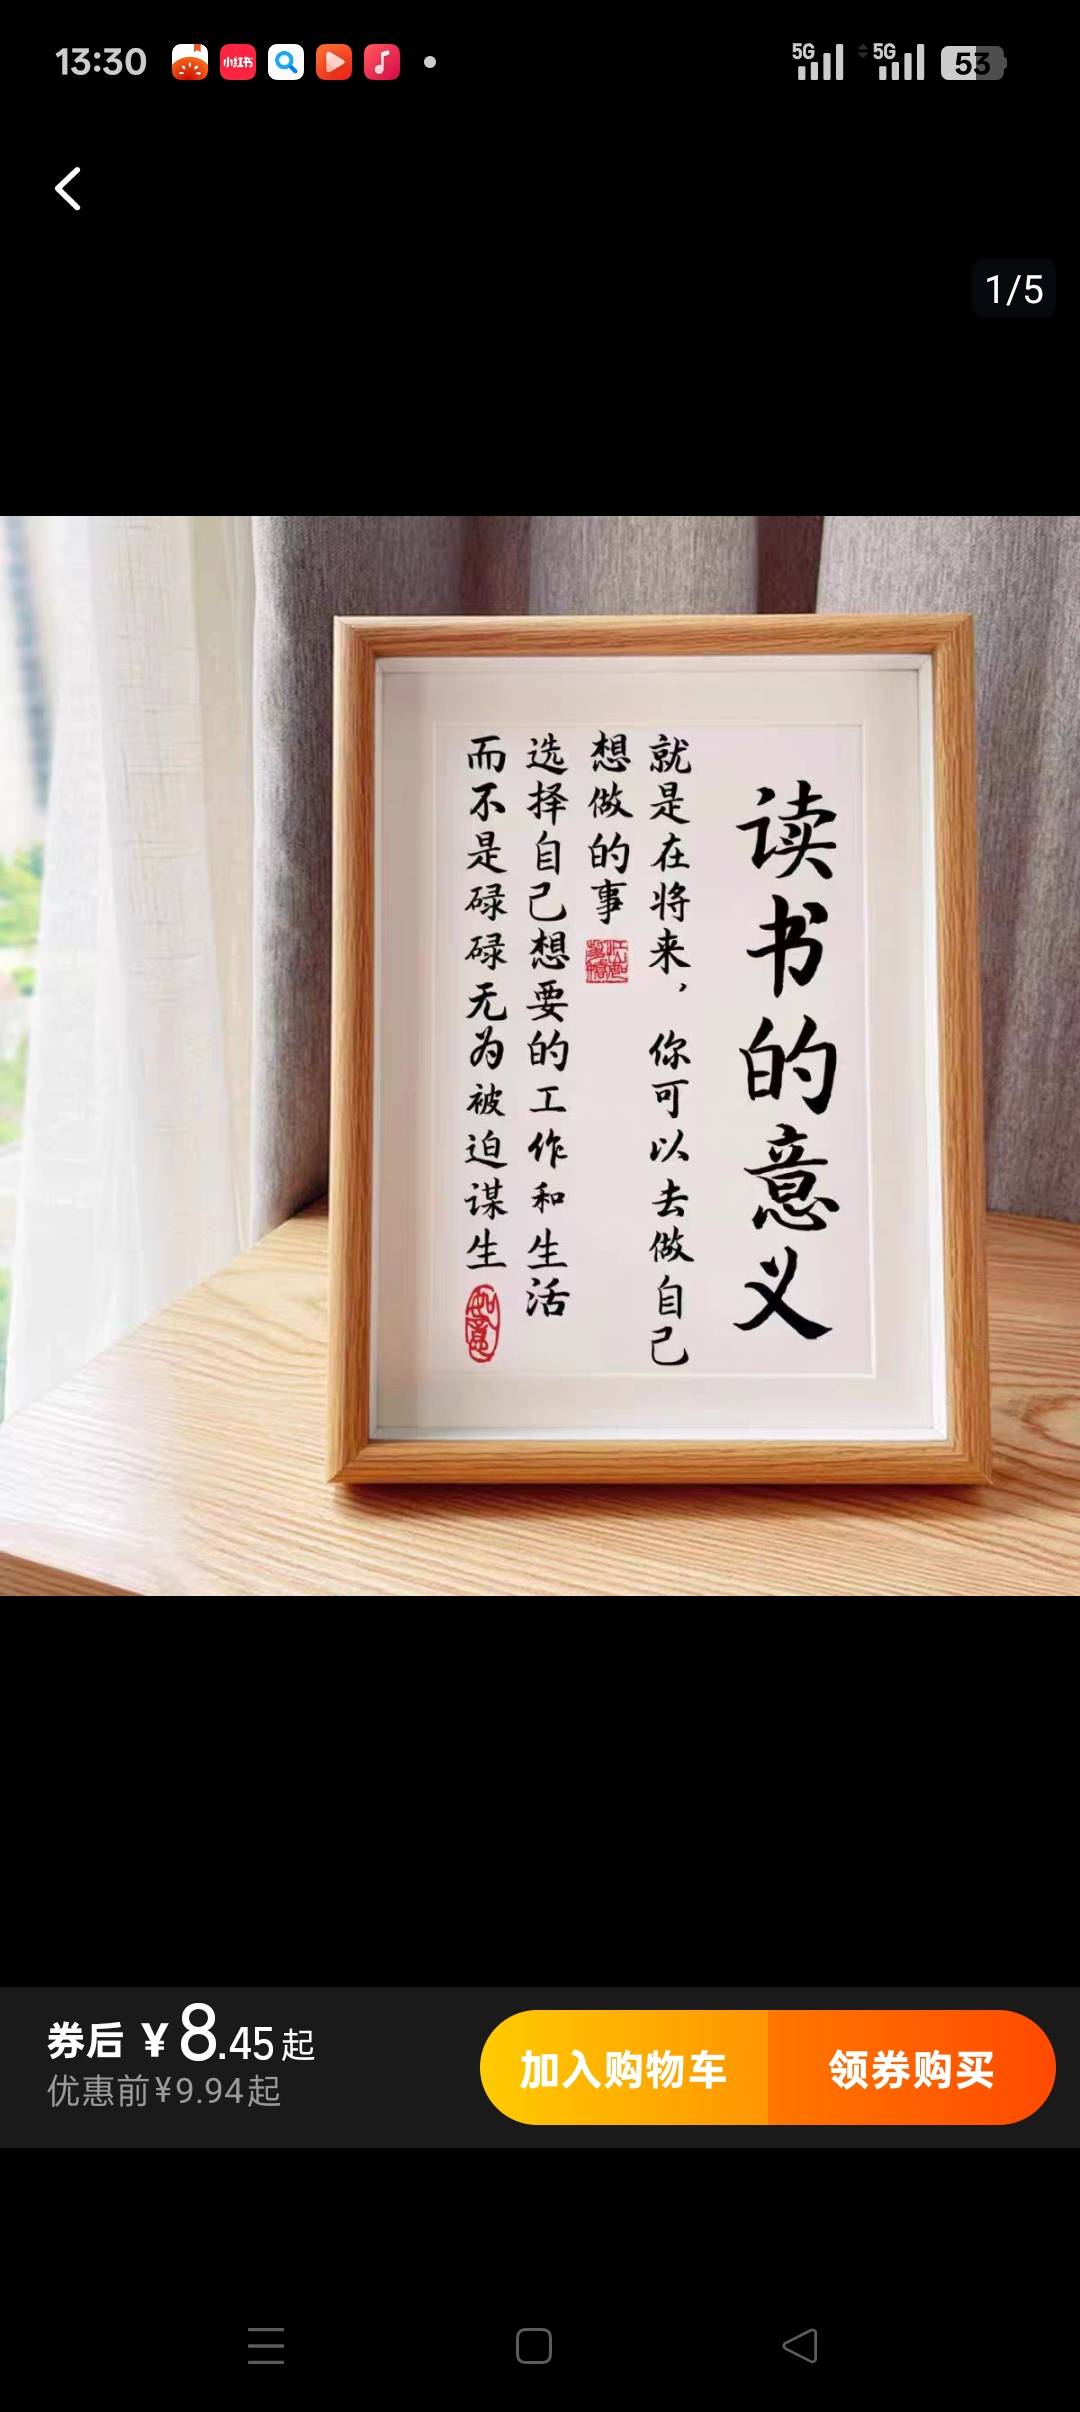 13:30
小红书
5G
5G
53
1/5
读书的意义
就是在将来，你可以去做自己
想做的事
选择自己想要的工作和生活
而不是碌碌无为被迫谋生
如意
券后 ¥8.45起
优惠前¥9.94起
加入购物车
领券购买